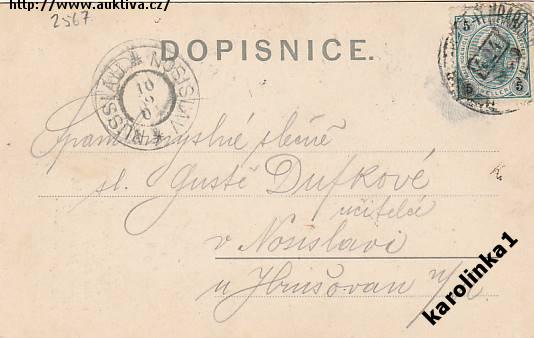 http://www.auktiva.cz/
2567
DOPISNICE.
NUSSLAU * NOSISLAV *
5
5 5
Spanilomyslné slečně
sl. Gustě Dufkové
učitelce
v Nosislavi
u Hrušovan
karolinka1